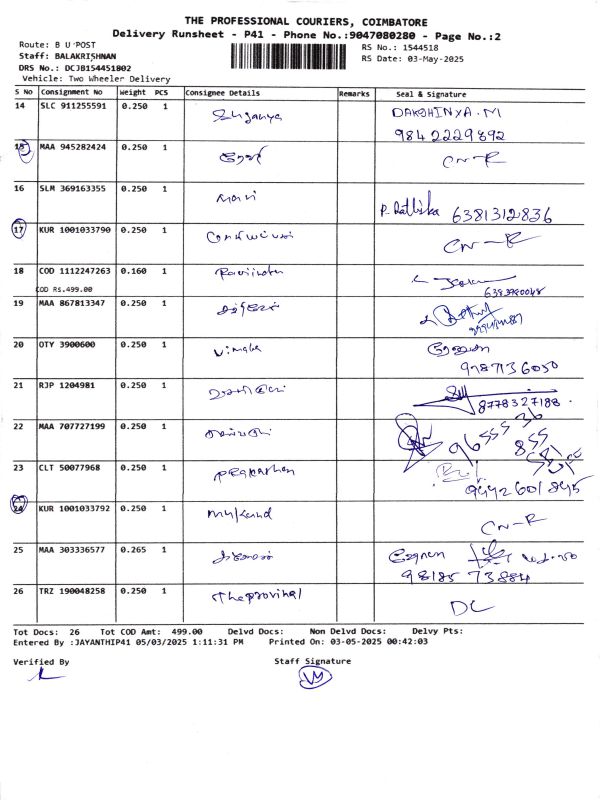 THE PROFESSIONAL COURIERS, COIMBATORE
Delivery Runsheet - P41 - Phone No.:9047080280 - Page No.:2
Route: B U POST
RS No.: 1544518
Staff: BALAKRISHNAN
RS Date: 03-May-2025
DRS No.: DCJB154451802
Vehicle: Two Wheeler Delivery
S No Consignment No Weight PCS Consignee Details Remarks Seal & Signature
14 SLC 911255591 0.250 1 DAKSHINYA.M
9842229892
15 MAA 945282424 0.250 1 CN-R
16 SLM 369163355 0.250 1 மணி
P. Rathika 6381312836
17 KUR 1001033790 0.250 1 CN-R
18 COD 1112247263 0.160 1
COD Rs.499.00
19 MAA 867813347 0.250 1
20 OTY 3900600 0.250 1 Vimala
9787136050
21 RJP 1204981 0.250 1
8778327188.
22 MAA 707727199 0.250 1
23 CLT 50077968 0.250 1 prakathen
9442601845
24 KUR 1001033792 0.250 1 Mukund CN-R
25 MAA 303336577 0.265 1
98185 73884
26 TRZ 190048258 0.250 1 DC
Tot Docs: 26 Tot COD Amt: 499.00 Delvd Docs: Non Delvd Docs: Delvy Pts:
Entered By :JAYANTHIP41 05/03/2025 1:11:31 PM Printed On: 03-05-2025 00:42:03
Verified By Staff Signature